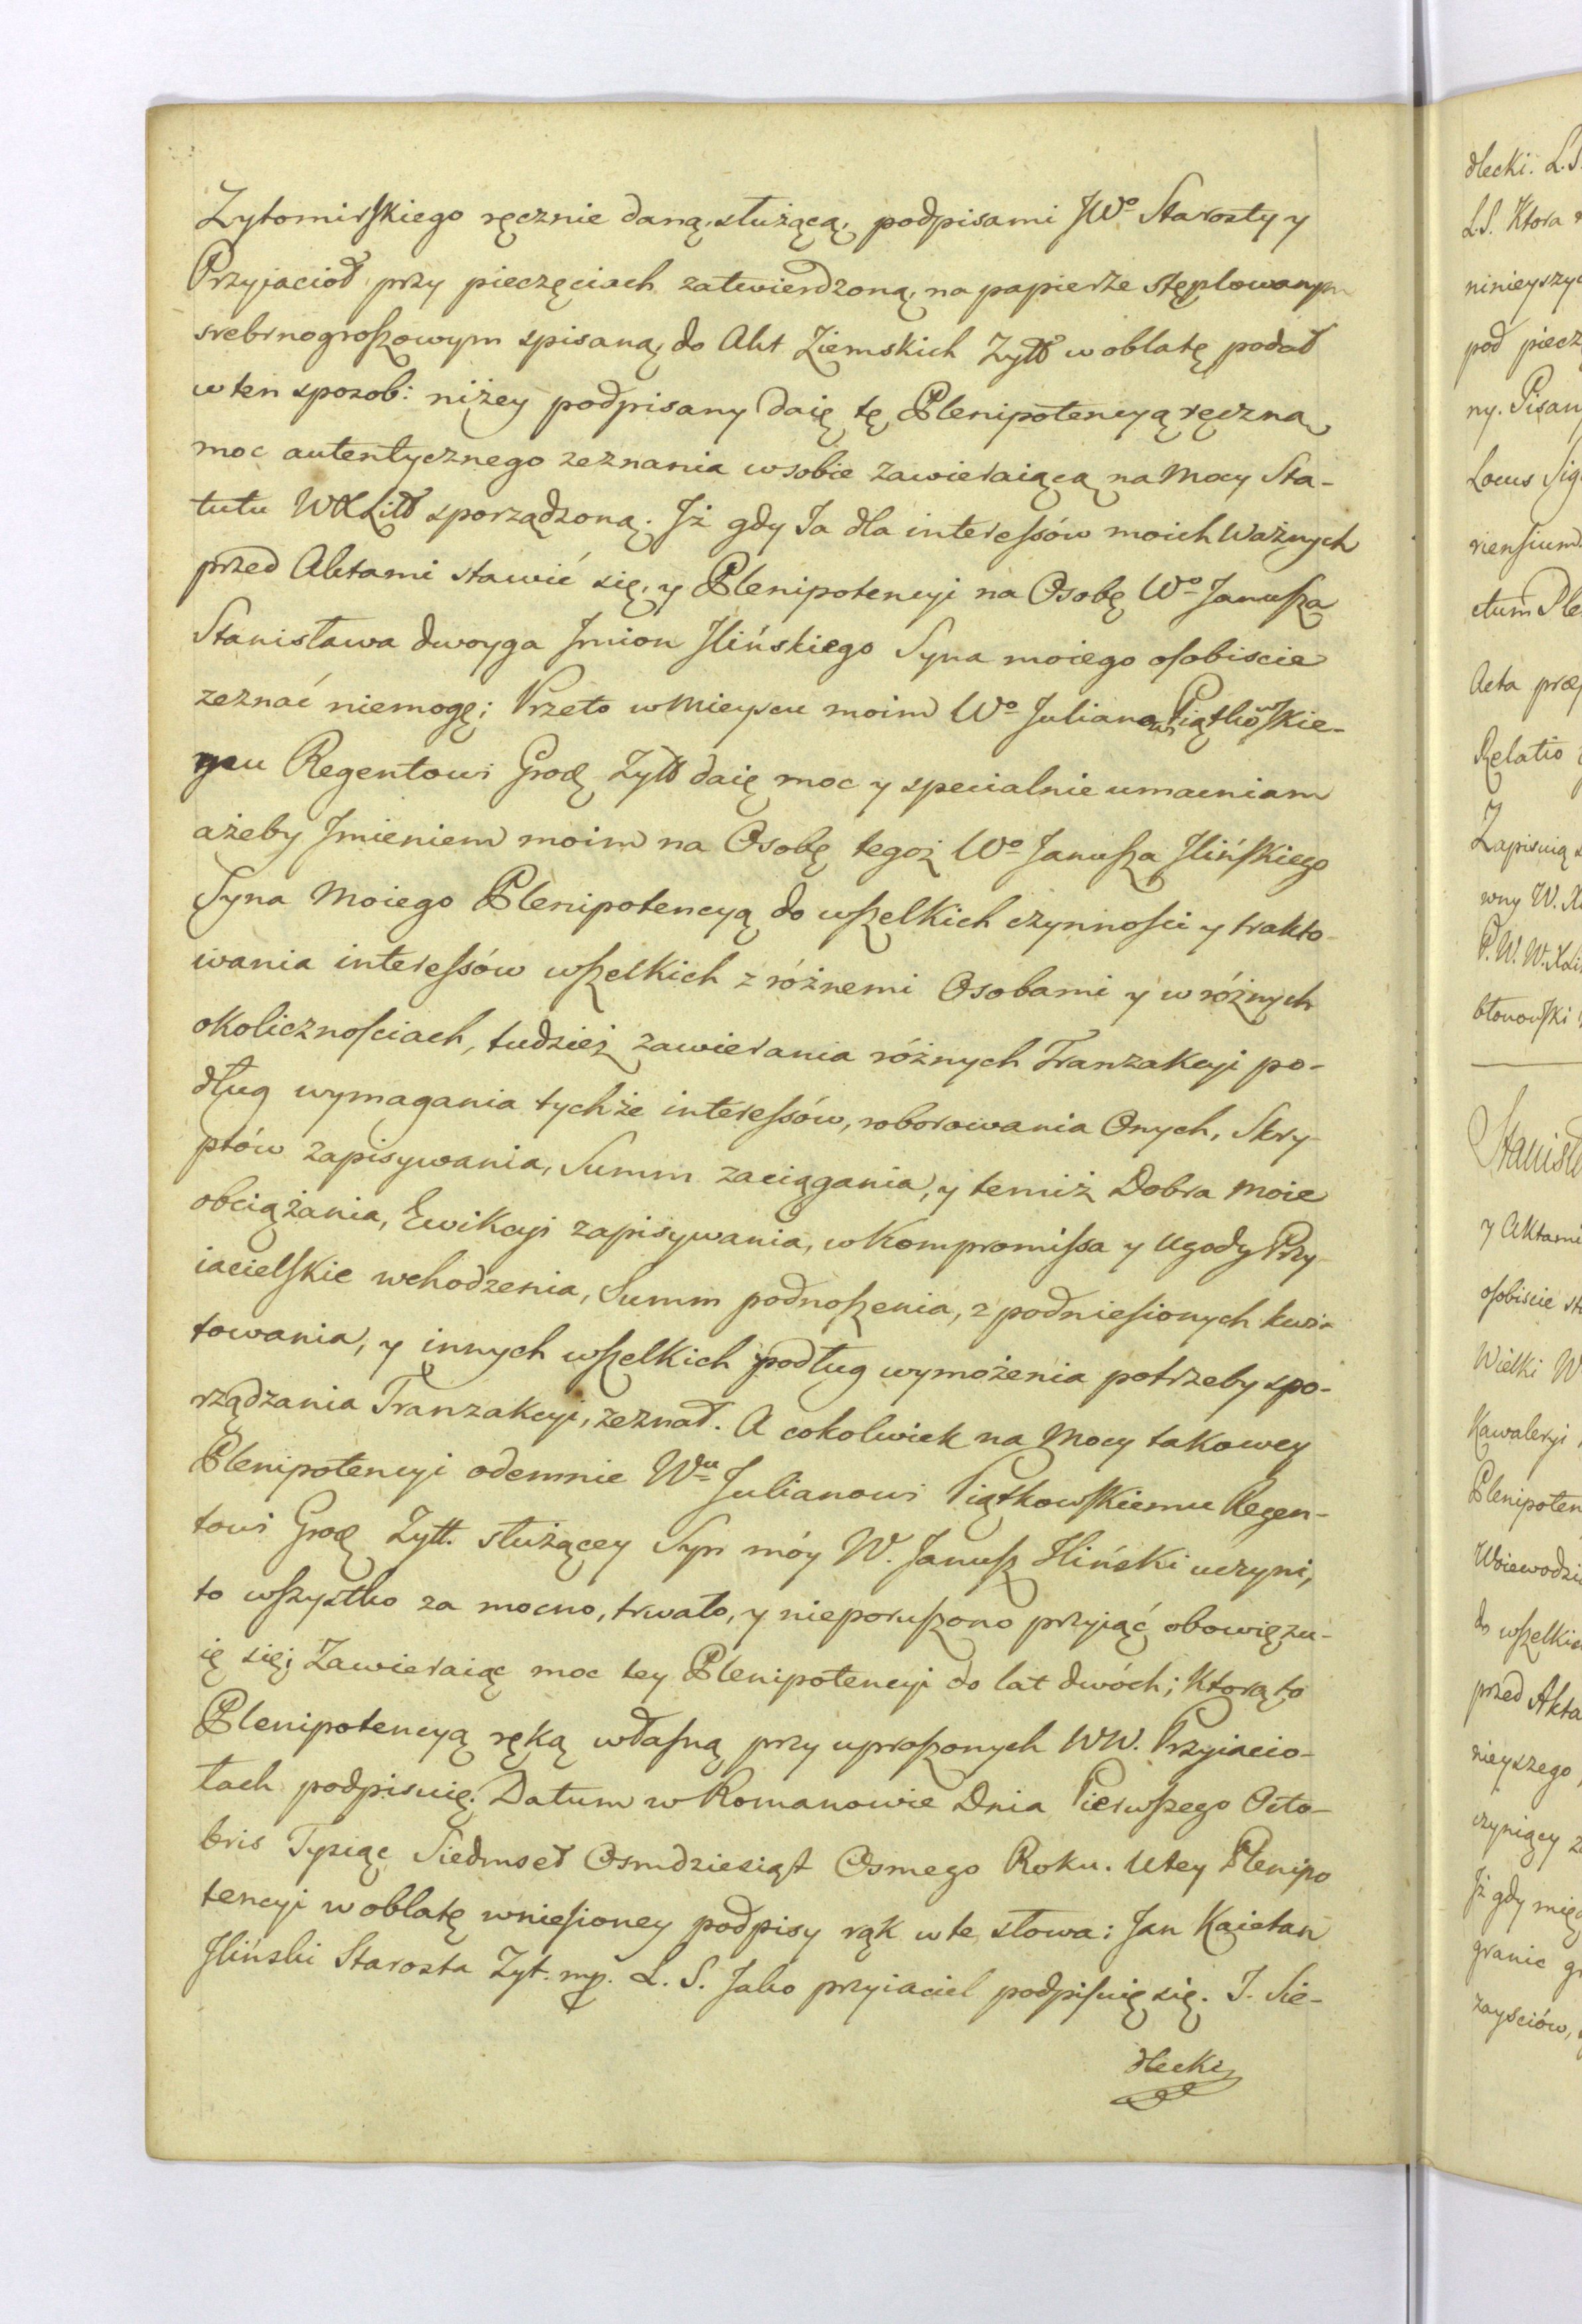 Zytomirskiego ręcznie daną, służącą, podpisami JWº Starosty y
Przyjacioł przy pieczęciach zatwierdzoną, na papierze stęplowanym
srebrnogroszowym spisaną, do Akt Ziemskich Zytt w oblatę podał
w ten sposob: niżey podpisany daię tę Plenipotencyą ręczną
moc autentycznego zeznania w sobie zawieraiącą na Mocy Sta-
tutu WXLitt sporządzoną. Jż gdy Ja dla interessów moich Ważnych
przed Aktami stawić się, y Plenipotencyi na Osobę Wº Janusza
Stanisława dwoyga Jmion Jlińskiego Syna moiego osobiscie
zeznać niemogę; Przeto w Mieyscu moim Wº Julianowi Piątkowskie-
mu Regentowi Grodę Zytt daię moc y specialnie umacniam
ażeby Jmieniem moim na Osobę tegoż Wº Janusza Jlińskiego
Syna Moiego Plenipotencyą do wszelkich czynnosci y trakto-
wania interessów wszelkich z różnemi Osobami y w różnych
okolicznosciach, tudzież zawierania różnych Tranzakcyi po-
dług wymagania tychże interessów, roborowania Onych, Skry-
ptów zapisywania, Summ zaciągania, y temiż Dobra moie
obciążania, Ewikcyi zapisywania, w Kompromissa y Ugody Przy-
iacielskie wchodzenia, Summ podnoszenia, z podniesionych kwi-
towania, y innych wszelkich podług wymożenia potrzeby spo-
rządzania Tranzakcyi, zeznał. A cokolwiek na Mocy takowey
Plenipotencyi odemnie Wu Julianowi Piątkowskiemu Regen-
towi Grodę Zytt. służącey Syn móy W. Janusz Jliński uczyni,
to wszystko za mocno, trwało, y nieporuszono przyjąć obowięzu-
ię się; Zawieraiąc moc tey Plenipotencyi do lat dwóch; Ktorą to
Plenipotencyą ręką własną przy uproszonych WW. Przyiacio-
łach podpisuię. Datum w Romanowie Dnia Pierwszego Octo-
bris Tysiąc Siedmset Osmdziesiąt Osmego Roku. U tey Plenipo
tencyi w oblatę wniesioney podpisy rąk w te słowa: Jan Kaietan
Jliński Starosta Zyt. mp. L. S. Jako przyiaciel podpisuię się. J. Sie-
dlecki
dlecki. L.S.
L.S. Ktora
ninieyszy
pod piecz
ny. Pisan
Locus Sig
riensium
ctum Ple
Acta præ
Relatio
Zapisuią
wny W.
P. W. W.
błonowski
Stanisł
y Aktami
osobiscie st
Wielki W
Kawaleryi
Plenipoten
Woiewodz
do wszelkic
przed Akta
nieyszego
czyniący z
Jż gdy mię
granic g
zayściów,